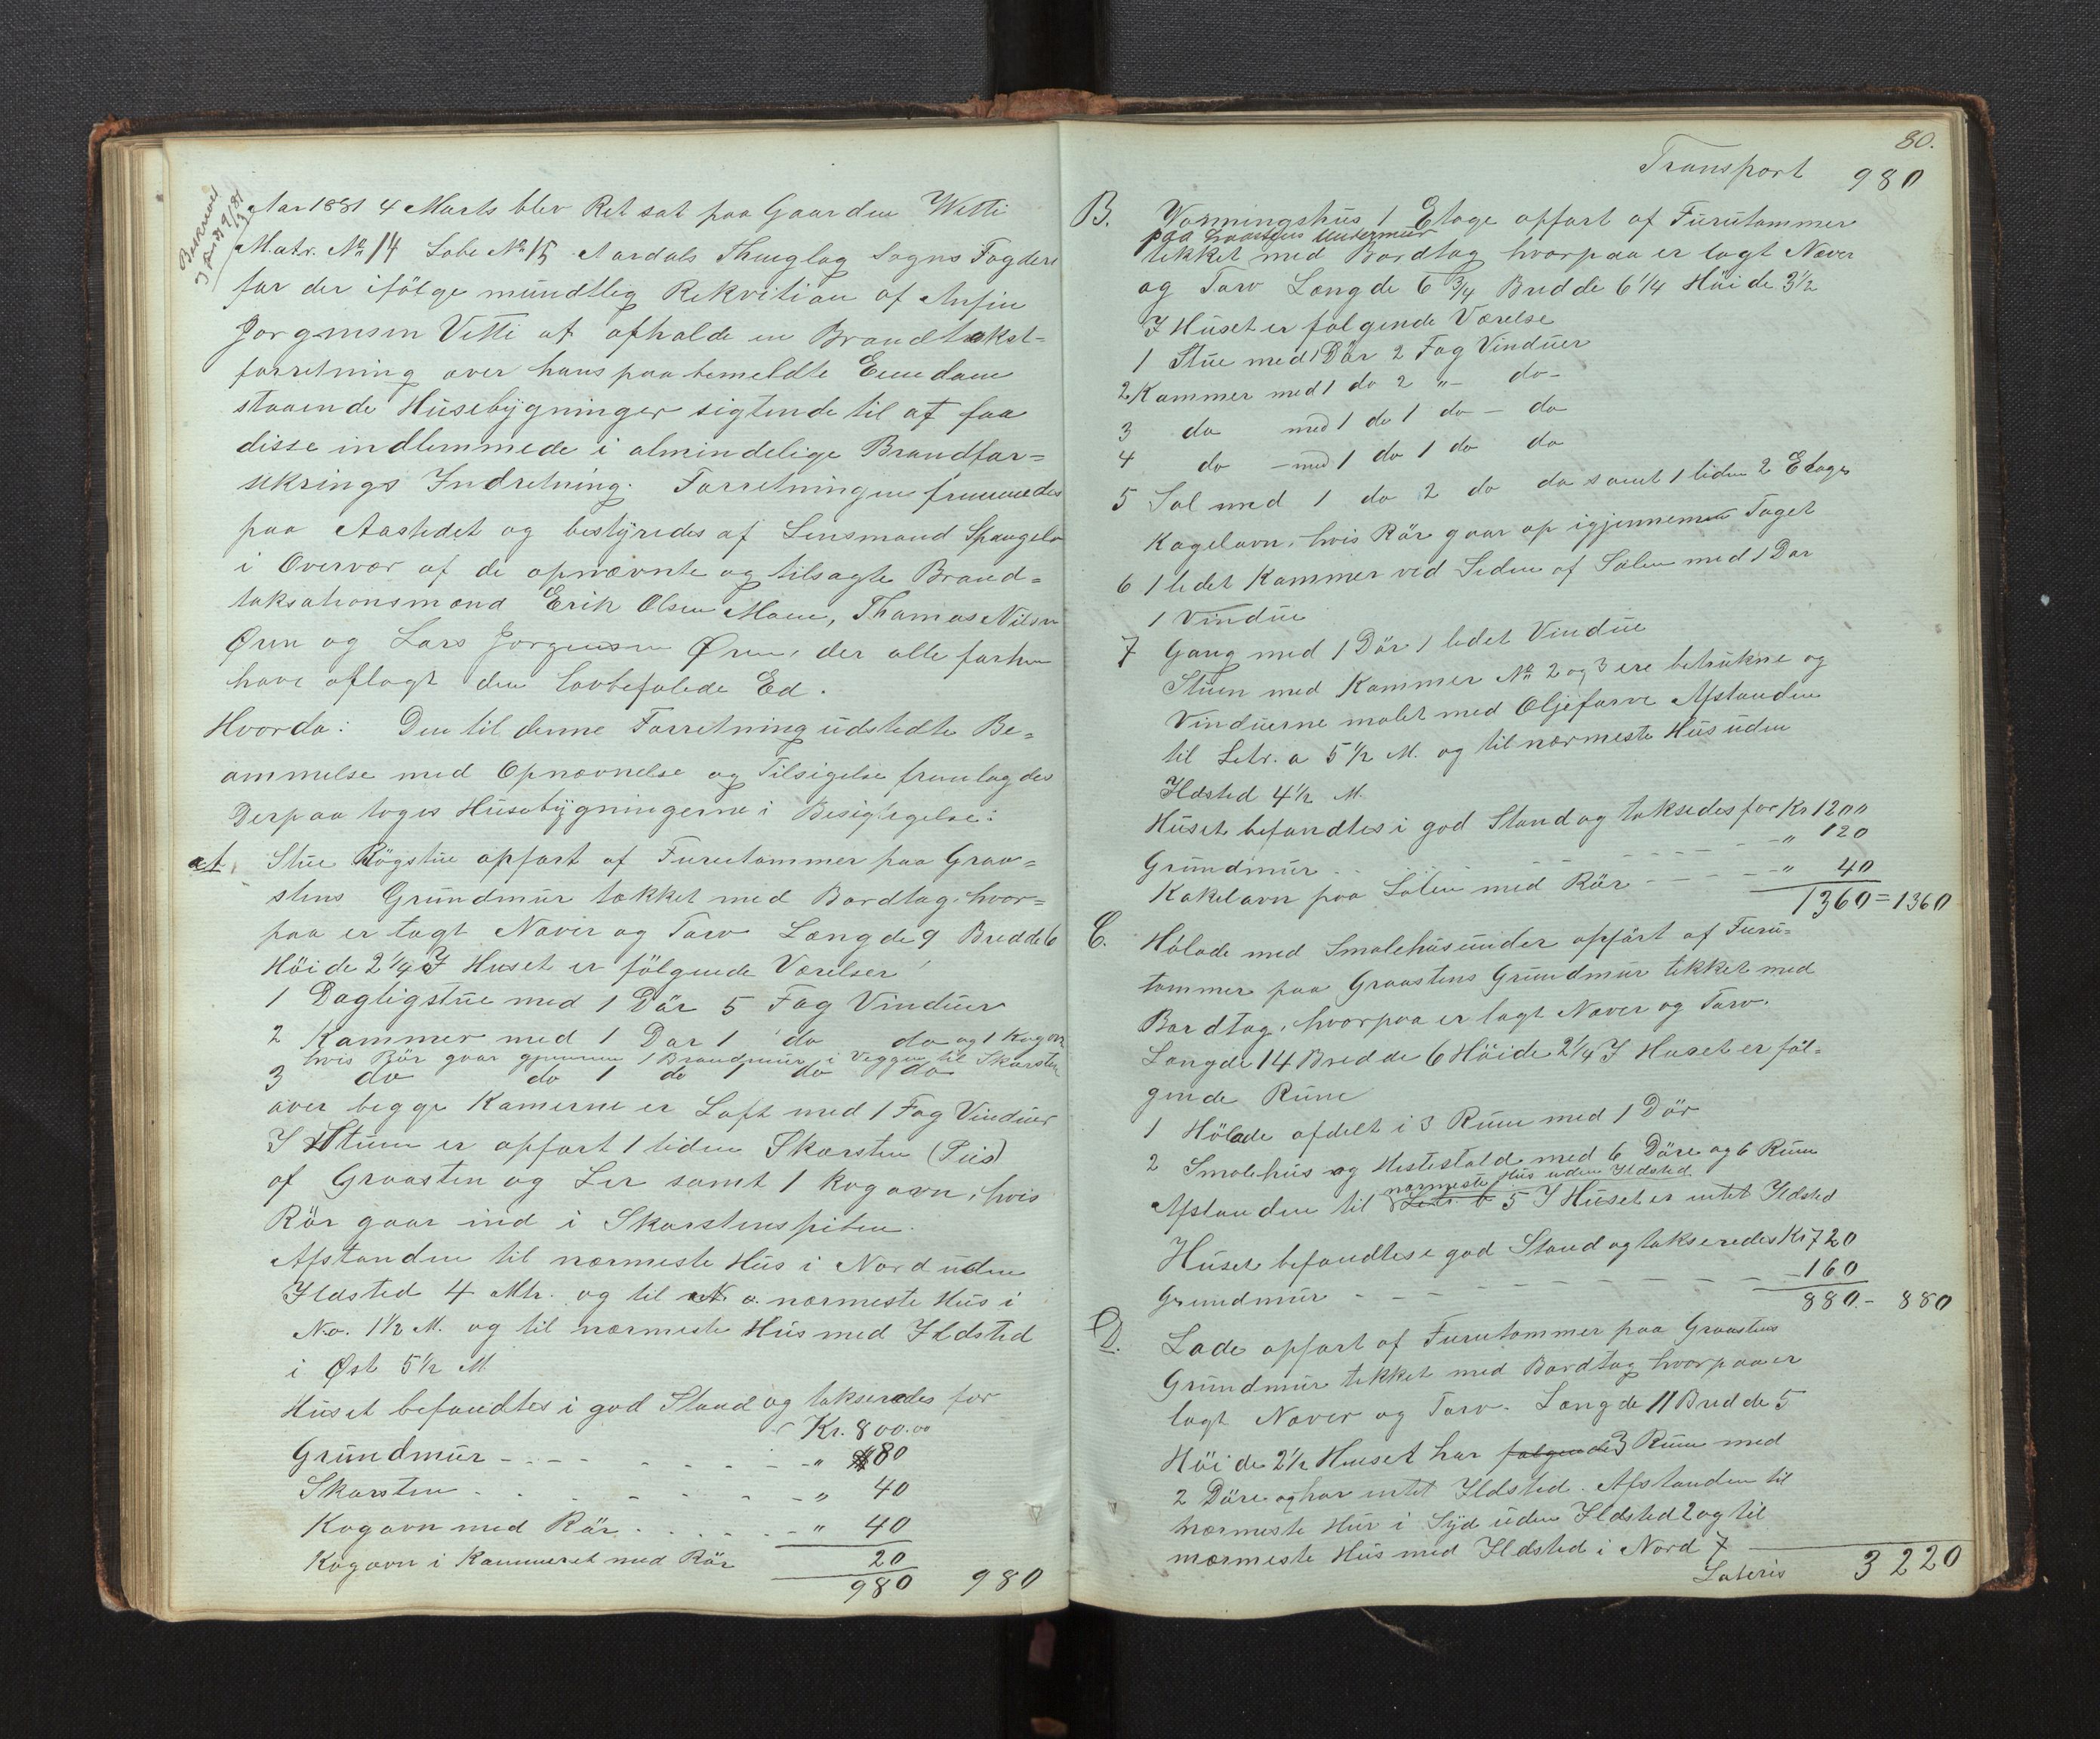 Aar 1881 4 Marts blev Ret sat paa Gaarden Vetti
Matr. No 14 Løbe No 15 Aardals Thinglag Sogns Fogderi
for der ifölge mündtlig Rekvition af Anfin
Jørgensen Vetti at afholde en Brandtakst-
forretning over hans paa bemeldte Eiendom
staaende Hüsebÿgninger sigtende til at faa
disse indlemmede i almindelige Brandfor=
sikrings Indretning. Forretningen fremmedes
paa Aastedet og bestÿredes af Lensmand Spangelo
i Overvær af de opnævnte og tilsagte Brand=
taksationsmænd Erik Olsen Moen, Thomas Nilsen
Øren og Lars Jørgensen Øren, der alle forhen
have aflagt den lovbefalede Ed.
Hvorda: Den til denne Forretning üdstedte Be=
rammelse med Opnævnelse og Tilsigelse fremlagdes
Derpaa toges Hüsebÿgningerne i Besigtigelse:
Stüe Rögstüe opført af Furutømmer paa Graa=
stens Gründmür tækket med Bordtag, hvor=
paa er lagt Næver og Torv Længde 9 Bredde 6
Höide 2 1/4 I Huset er fölgende Værelser
1 Dagligstüe med 1 Dör 5 Fag Vindüer
2 Kammer med 1 Dør 1 do do og 1 Kogovn
hvis Rör gaar gjennem 1 Brandmür i Veggen til Skorsten
3 do do 1 do 1 do do
over begge Kamerne er Loft med 1 Fag Vindüer
I Stüen er opført 1 liden Skorsten (Peis)
af Graasten og Ler samt 1 Kogovn, hvis
Rör gaar ind i Skorstenspiben.
Afstanden til nærmeste Hüs i Nord uden
Ildsted 4 Mtr. og til nærmeste Hüs i
N.o. 1 1/2 M. og til nærmeste Hüs med Ildsted
i Øst 5 1/2 M
Hüset befandtes i god Stand og takseredes for
Kr. 800.00
Gründmür - - - - - - - - " 80
Skorsten - - - - - - - - " 40
Kogovn med Rör - - - - - " 40
Kogovn i Kammeret med Rör 20
980 980
80.
Transport 980
B. Vaaningshüs 1 Etage opført af Fürütømmer
paa Graastens Undermür
tekket med Bordtag hvorpaa er lagt Næver
og Torv Længde 6 3/4 Bredde 6 1/4 Höide 3 1/2
I Hüset er følgende Værelse
1 Stüe med 1 Dör 2 Fag Vindüer
2 Kammer med 1 do 2 "- do-
3 do med 1 do 1 do - do
4 do - med 1 do 1 do do
5 Sal med 1 do 2 do do samt 1 liden 2 Etages
Kagelovn, hvis Rör gaar op igjennem Taget
6 1 lidet Kammer ved Siden af Salen med 1 Dør
1 Vindüe
7 Gang med 1 Dör 1 lidet Vindüe
Stüen med Kammer No 2 og 3 ere betrukne og
Vindüerne malet med Oljefarve Afstanden
til Litr. a 5 1/2 M. og til nærmeste Hüs üden
Ildsted 4 1/2 M.
Hüset befandtes i god Stand og taksedes for Kr 1200
Gründmür - - - - - - " 120
Kakelovn paa Salen med Rör - - - - " 40
1360 = 1360
C. Hölade med Smalehüs ünder opfört af Fürü=
tømmer paa Graastens Gründmür tekket med
Bordtag, hvorpaa er lagt Næver og Torv.
Længde 14 Bredde 6 Höide 2 1/4 I Huset er föl=
gende Rüm
1 Hölade afdelt i 3 Rüm med 1 Dör
2 Smalehüs og Hestestald med 6 Döre og 6 Rüm
nærmeste Hüs uden Ildsted
Afstanden til Litr. b 5 I Hüset er intet Ildsted
Hüset befandtes i god Stand og takseredes Kr 720
Grundmür - - - - - - - - 160
880.- 880
D. Lade opført af Furutømmer paa Graastens
Gründmür tekket med Bordtag hvorpaa er
lagt Næver og Torv. Længde 11 Bredde 5
Höide 2 1/2 Huset har følgende 3 Rüm med
2 Döre og har intet Ildsted. Afstanden til
nærmeste Hüs i Sÿd üden Ildsted 2 og til
nærmeste Hüs med Ildsted i Nord 7
Lateris 3220